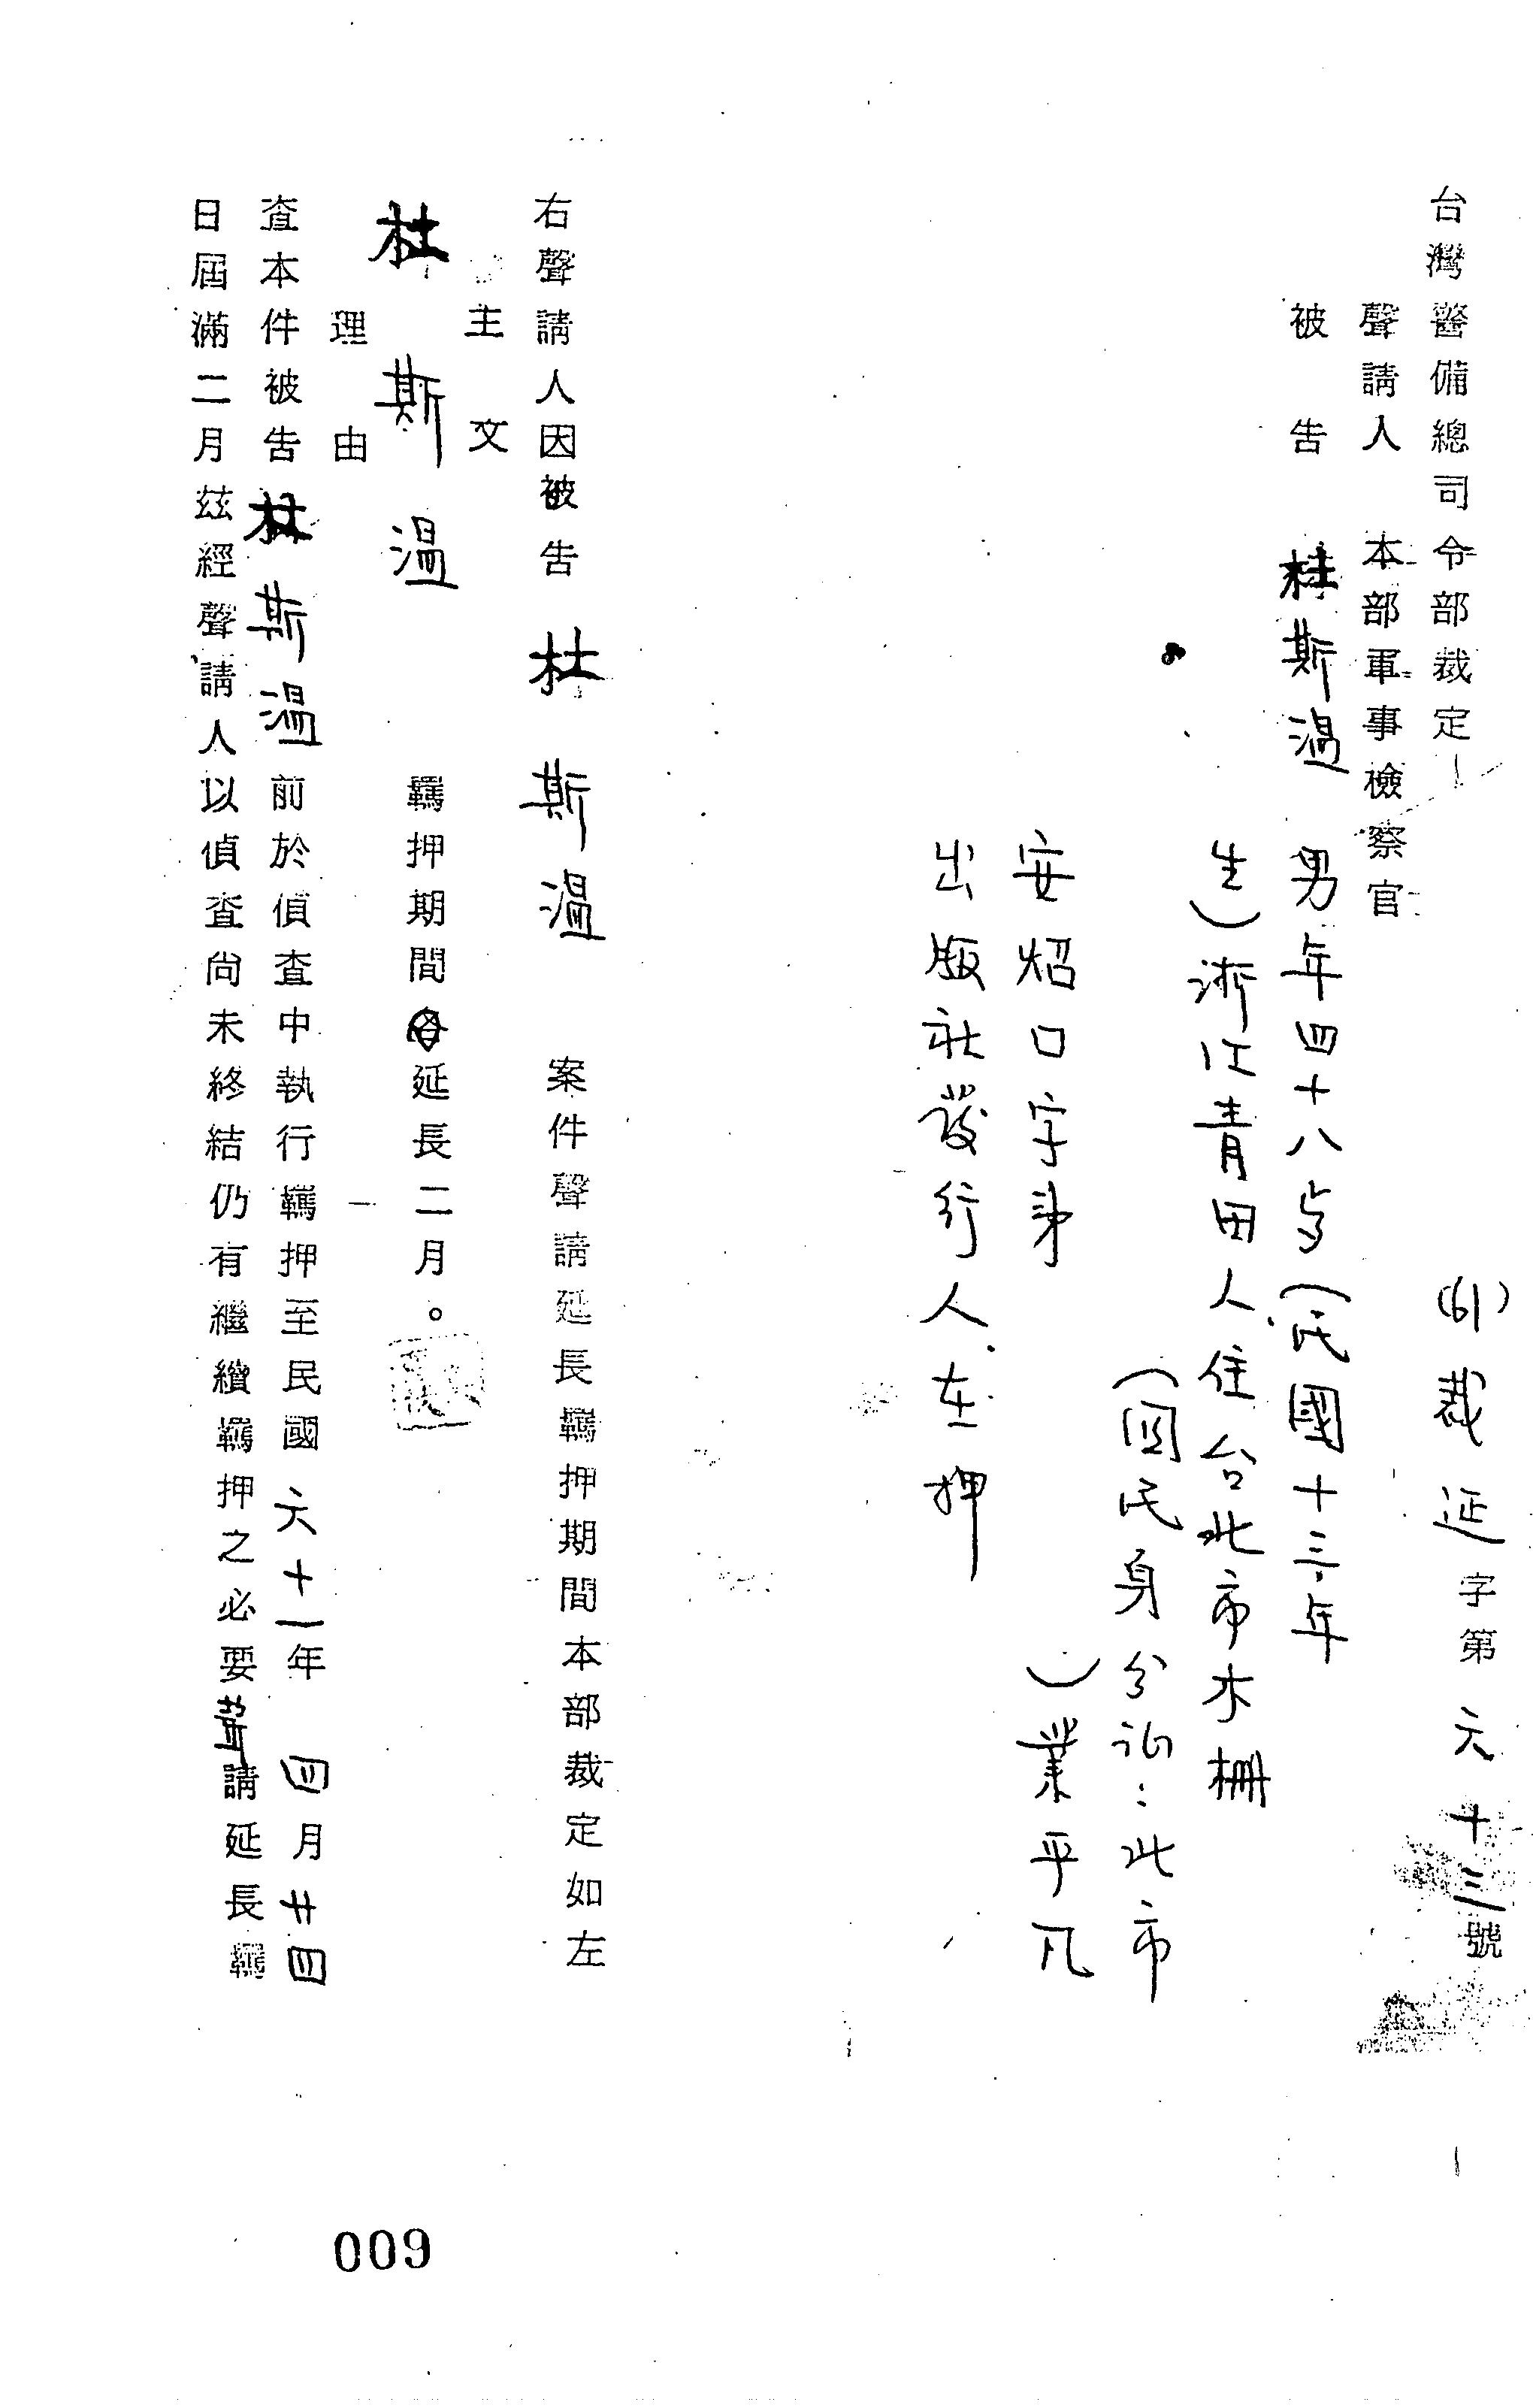 台灣警備總司令部裁定
(61)裁延字第六十三號
聲請人 本部軍事檢察官
被告 杜斯溫 男年四十八歲(民國十三年
生)浙江青田人住台北市木柵
(國民身分証:北市
安炤口字第 )業平凡
出版社發行人在押
右聲請人因被告 杜斯溫 案件聲請延長羈押期間本部裁定如左
主文
杜斯溫 羈押期間延長二月。
理由
查本件被告杜斯溫前於偵查中執行羈押至民國六十一年四月廿四
日屆滿二月茲經聲請人以偵查尚未終結仍有繼續羈押之必要聲請延長羈
009